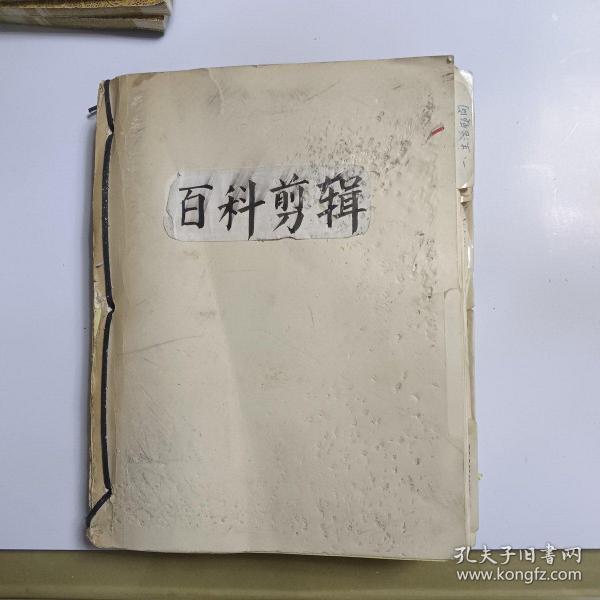 百科剪辑
孔夫子旧书网
www.kongfz.com